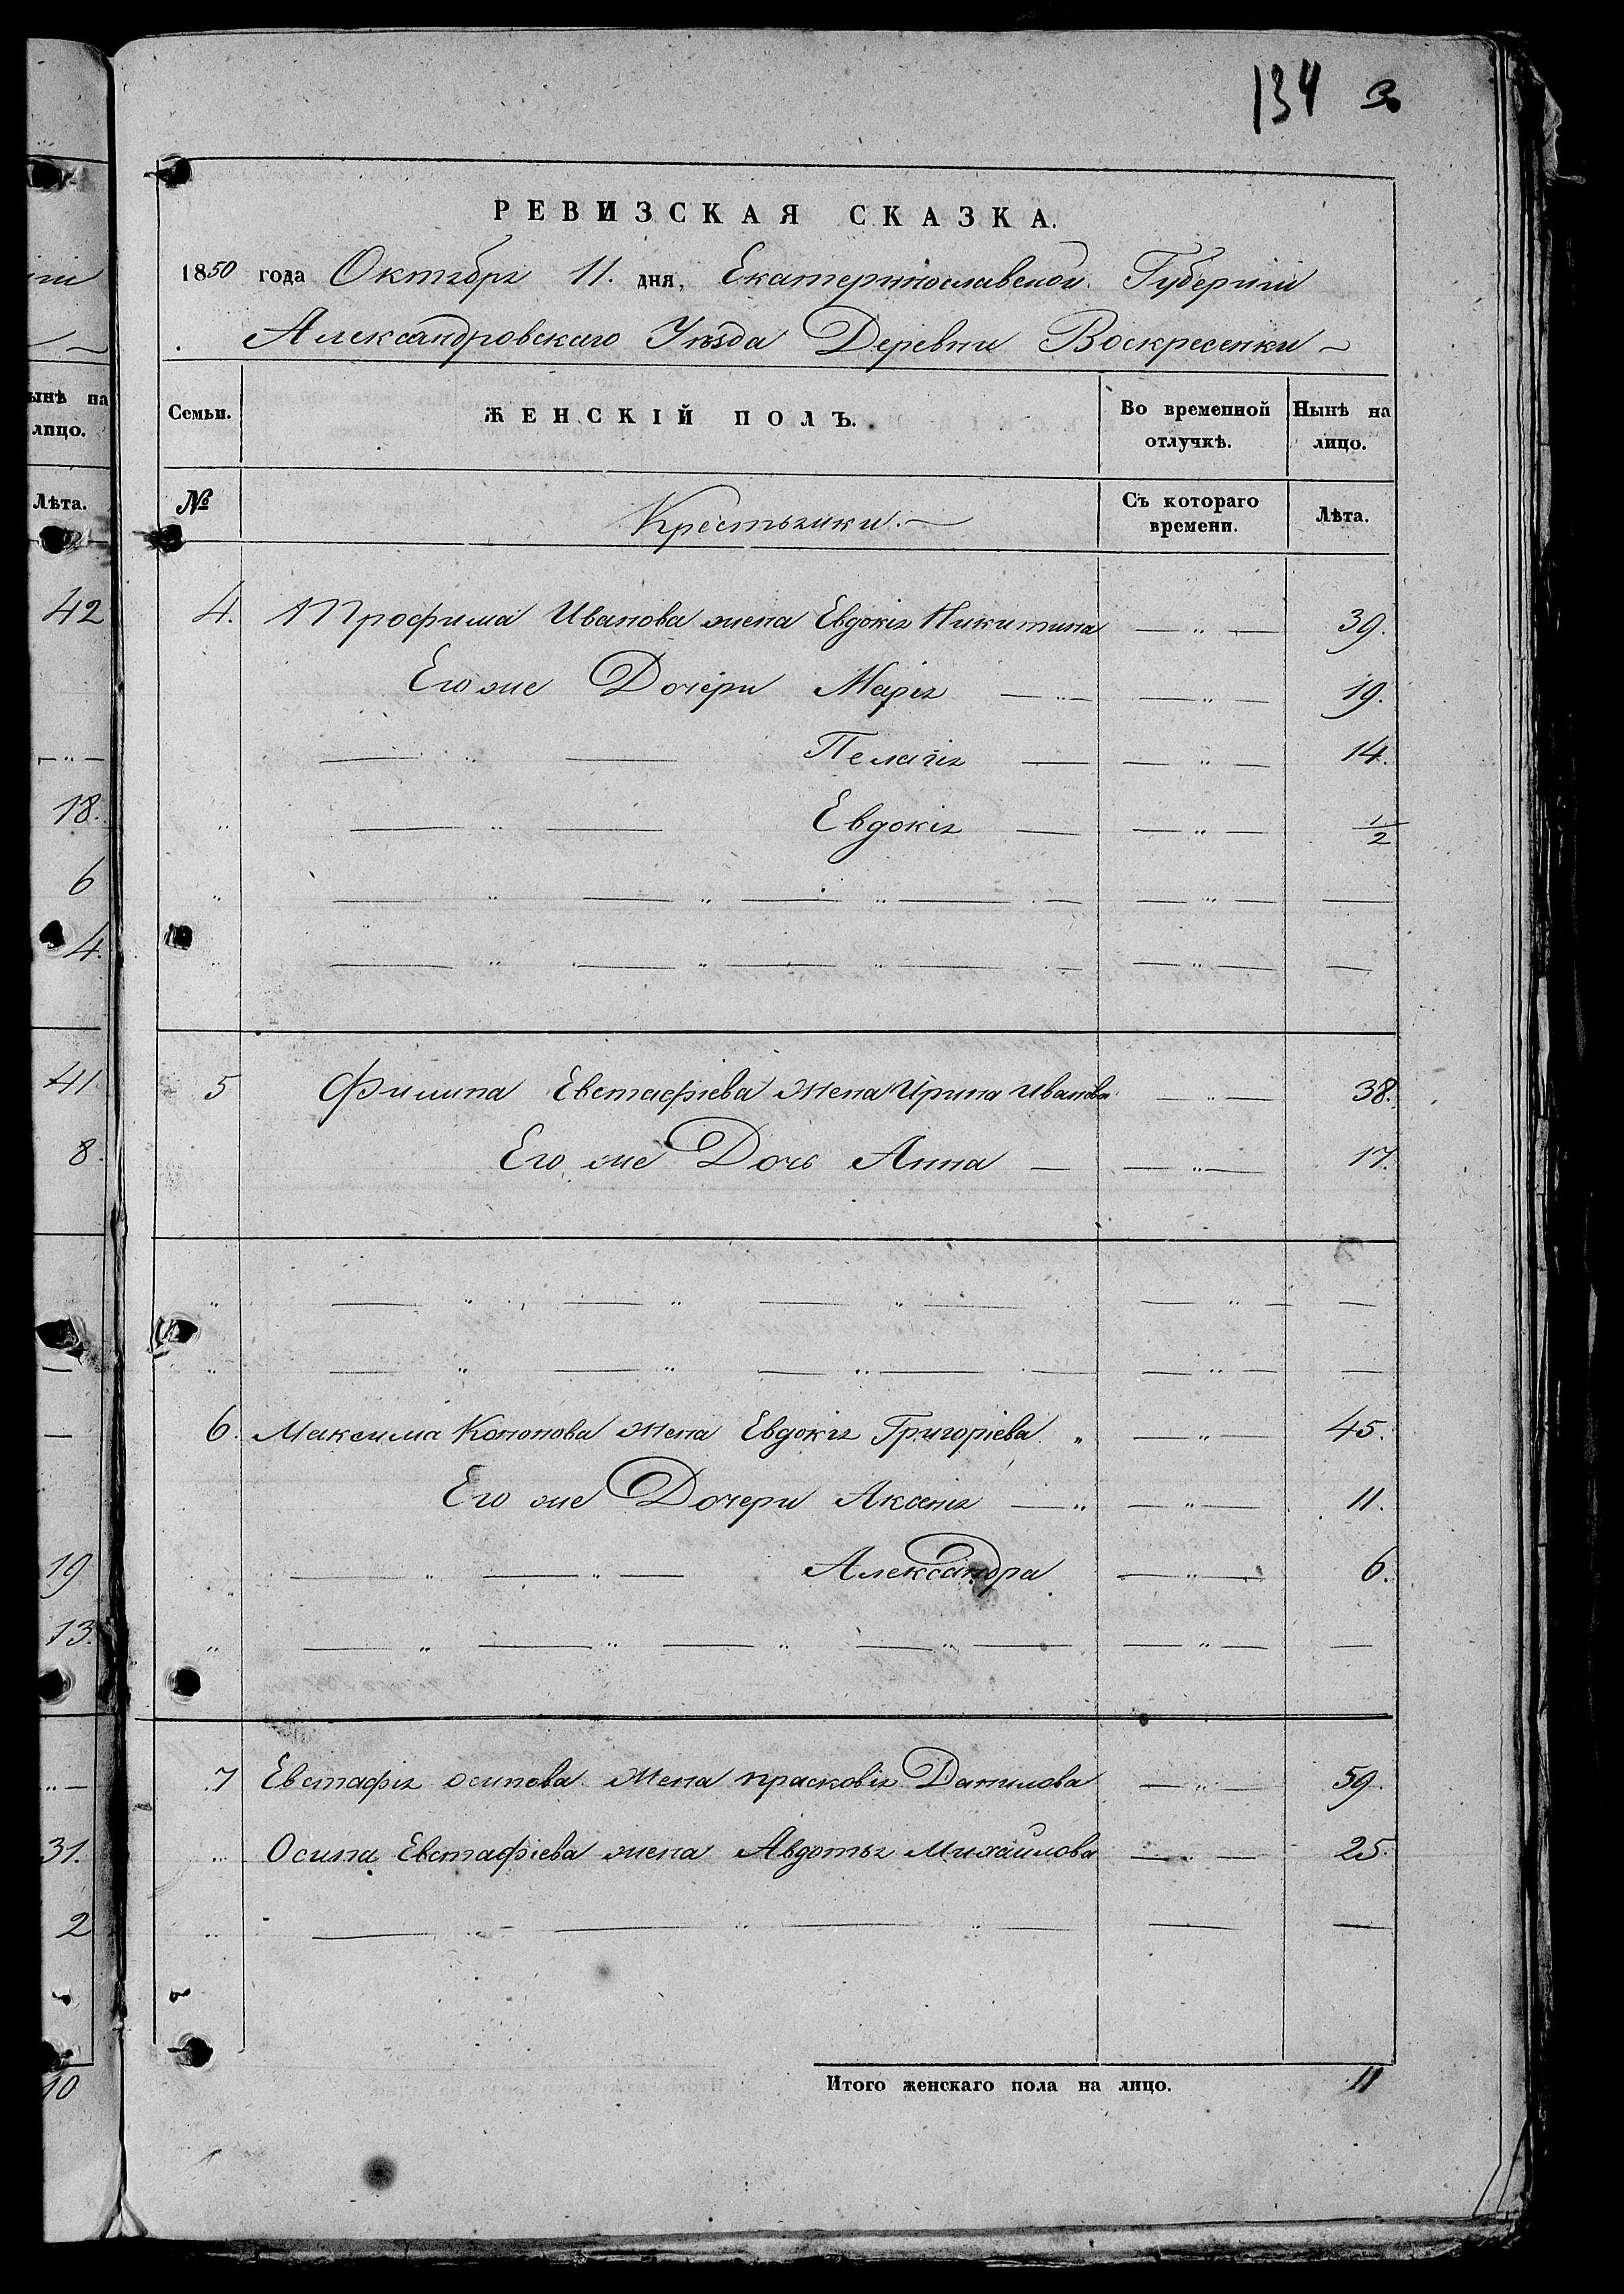 134 3
РЕВИЗСКАЯ СКАЗКА.
1850 года Октября 11. дня, Екатеринославской Губернiи
Александровскаго Уѣзда Деревни Воскресенки
Семьи. ЖЕНСКIЙ ПОЛЪ. Во временной отлучкѣ. Нынѣ на лицо.
№ Крестьянки. Съ котораго времени. Лѣта.
4. Трофима Иванова жена Евдокiя Никитина — „ — 39.
Его же Дочери Марiя — „ — 19.
— „ — Пелагiя — „ — 14.
„ — „ — Евдокiя — „ — 1/2
5 Филипа Евстафiева жена Ирина Иванова — „ — 38.
Его же Дочь Анна — „ — 17.
6. Максима Кононова жена Евдокiя Григорiева „ — „ — 45.
Его же Дочери Аксенiя — „ — 11.
— „ — „ — Александра — „ — 6.
7 Евстафiя Осипова жена Прасковiя Данилова — „ — 59.
„ Осипа Евстафiева жена Авдотья Михайлова — „ — 25.
Итого женскаго пола на лицо. 11
ынѣ на
лицо.
Лѣта.
42
18.
6
4.
41
8.
19
13.
31.
2
10